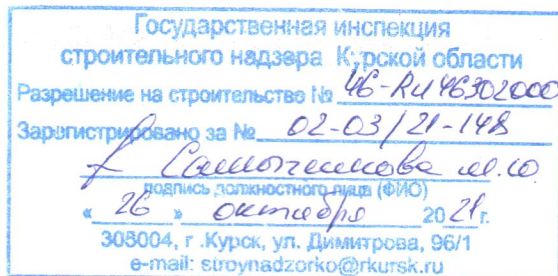 Государственная инспекция
строительного надзора Курской области
Разрешение на строительство № 46-Ru46302000
Зарегистрировано за № 02-03/21-148
м.ю.
подпись должностного лица (ФИО)
« 26 » октября 2021 г.
305004, г .Курск, ул. Димитрова, 96/1
e-mail: stroynadzorko@rkursk.ru